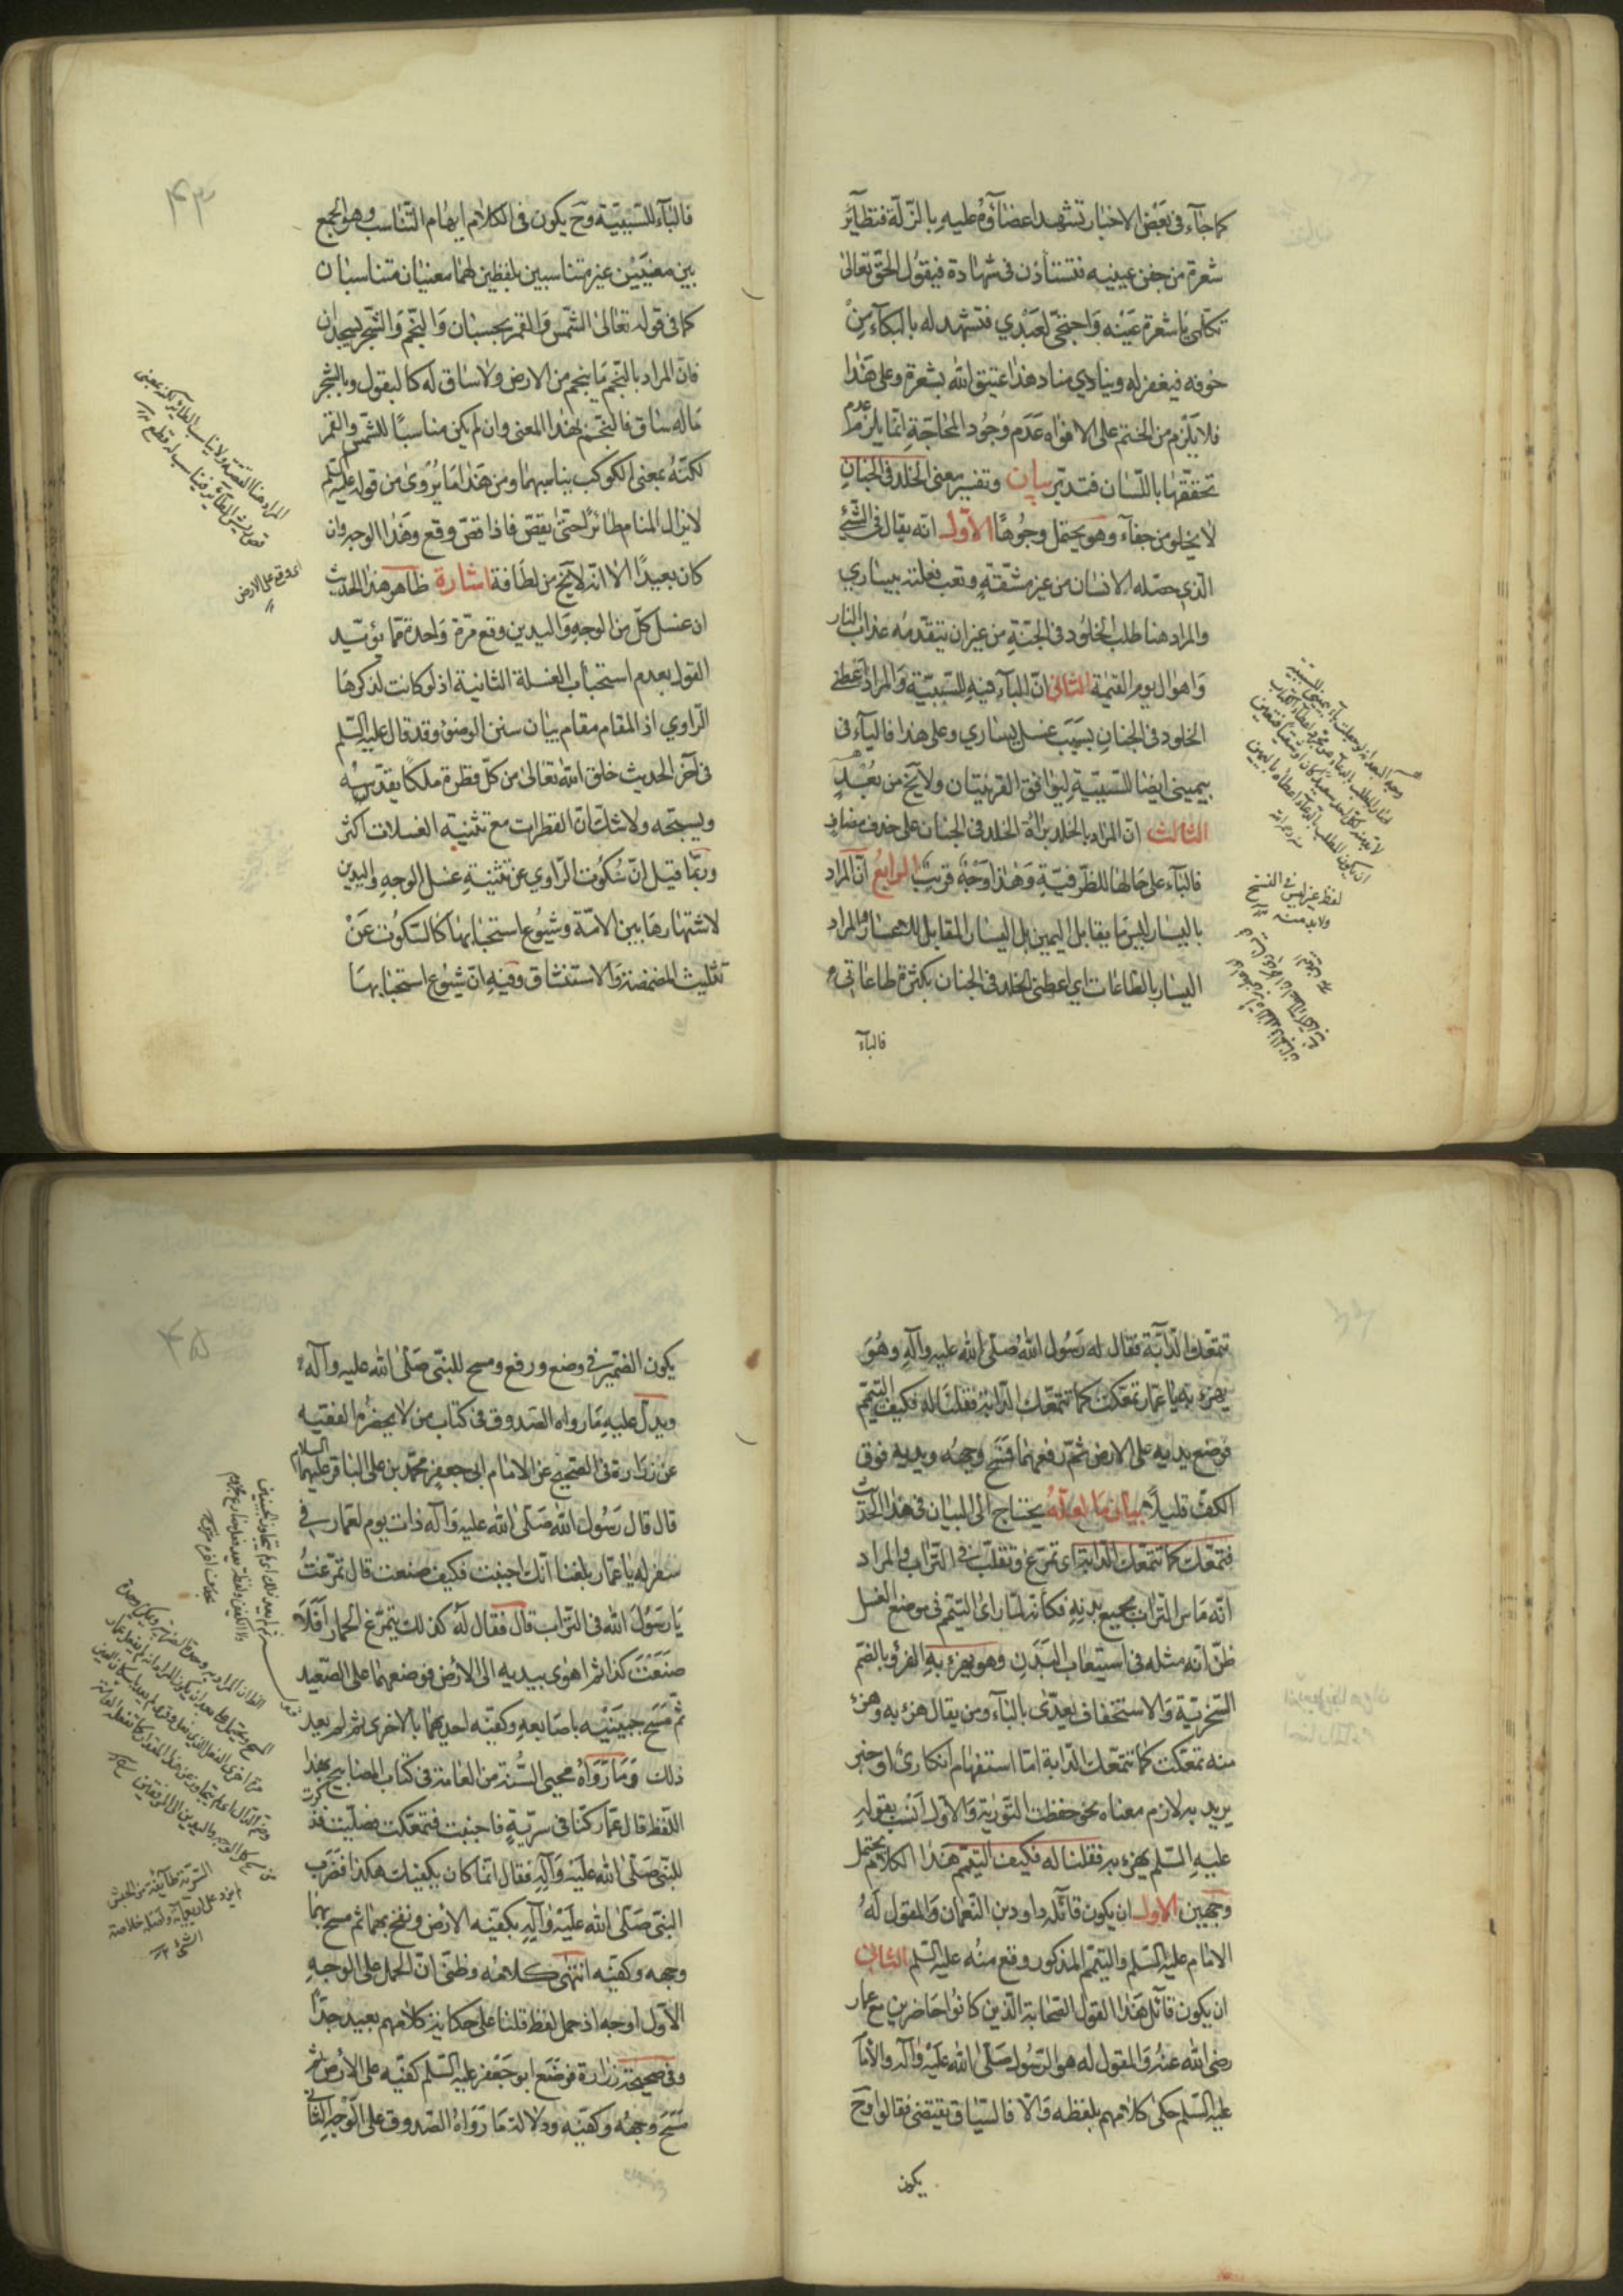 كما جآء فى بعض الاخبار تشهد اعضآؤه عليه بالزلّة فتطاير
شعرة من جفن عينيه فتستأذن فى شهادة فيقول الحق تعالى
تكلمى يا شعرة عينه واحتجى لعبدي فتشهد له بالبكآء من
خوفه فيغفر له وينادي مناد هذا عتيق الله بشعرة وعلى هذا
فلا يلزم من الختم على الافواه عدم وجود المحاجّة انما يلزم عدم
تحققها باللسان فتدبّر بيان وتفسير معنى الخلد فى الجنان
لا يخلو من خفآء وهو يحتمل وجوهًا الاوّل انه يقال فى الشئ
الذي حصّله الانسان من غير مشقّة وتعب فعلته بيساري
والمراد هنا طلب الخلود فى الجنّة من غير ان يتقدمه عذاب النار
واهوال يوم القيمة الثانى انّ البآء فيه للسببيّة والمراد اعطنى
الخلود فى الجنان بسبب غسل يساري وعلى هذا فالبآء فى
بيمينى ايضا للسببيّة ليوافق القرينتان ولا يخ من بُعْد
الثالث انّ المراد بالخلد براة الخلد فى الجنان على حذف مضاف
فالبآء على حالها للظرفيّة وهذا وجه قريب الرابع انّ المراد
باليسار ليس ما يقابل اليمين بل اليسار المقابل للاعسار والمراد
اليسار بالطاعات اي اعطنى الخلد فى الجنان بكثرة طاعاتى
فالبآء
لفظ غير ليس فى النسخ
ولا بد منه
٤٣
فالبآء للسببيّة وح يكون فى الكلام ايهام التناسب وهو الجمع
بين معنيَيْن غير متناسبين بلفظين لهما معنيان متناسبان
كما فى قوله تعالى الشمس والقمر بحسبان والنجم والشجر يسجدان
فانّ المراد بالنجم ما ينجم من الارض ولا ساق له كالبقول وبالشجر
ما له ساق فالنجم بهذا المعنى وان لم يكن مناسبًا للشمس والقمر
لكنّه بمعنى الكوكب يناسبهما ومن هذا ما يُروى من قوله عليه السلم
لا يزال المنام طائرًا حتى يقصّ فاذا قصّ وقع وهذا الوجه وان
كان بعيدًا الا انه لا يخ من لطافة اشارة ظاهر هذا الحديث
ان غسل كلّ من الوجه واليدين وقع مرّة واحدة ممّا يؤيّد
القول بعدم استحباب الغسلة الثانية اذ لو كانت لذكرها
الراوي اذ المقام مقام بيان سنن الوضوء وقد قال عليه السلم
فى آخر الحديث خلق الله تعالى من كلّ قطرة ملكًا يقدّسه
ويسبّحه ولا شك انّ القطرات مع تثنية الغسلات اكثر
وربّما قيل انّ سكوت الراوي عن تثنية غسل الوجه واليدين
لاشتهارها بين الامّة وشيوع استحبابها كالسكوت عن
تثليث المضمضة والاستنشاق وفيه انّ شيوع استحبابها
اى وقع على الارض
تتمعّك الدآبّة فقال له رسول الله صلّى الله عليه وآله وهو
يهزء به يا عمار تمعّكت كما تتمعّك الدابّة فقلنا له فكيف التيمّم
فوضع يديه على الارض ثم رفعهما فمسح وجهه ويديه فوق
الكفّ قليلًا بيان ما لعلّه يحتاج الى البيان فى هذا الحديث
فتمعّكت كما تتمعّك الدابّة اى تمرّغ وتقلّب فى التراب والمراد
انّه ماس التراب بجميع بدنه فكأنه لمّا رأى التيمّم فى موضع الغسل
ظنّ انّه مثله فى استيعاب البَدن وهو يهزء به الهزؤ بالضم
السخريّة والاستخفاف يعدّى بالبآء ومن يقال هزء به وهزء
منه تمعّكت كما تتمعّك الدابة امّا استفهام انكارى او خبر
يريد به لازم معناه نحو حفظت التوراية والاول انسب بقوله
عليه السلم يهزء به فقلنا له فكيف التيمّم هذا الكلام يحتمل
وجهين الاول ان يكون قائله داود بن النعمان والمقول له
الامام عليه السلم والتيمّم المذكور وقع منه عليه السلم الثانى
ان يكون قائل هذا القول الصحابة الذين كانوا حاضرين مع عمار
رضى الله عنه والمقول له هو الرسول صلّى الله عليه وآله والامام
عليه السلم حكى كلامهم بلفظه والّا فالسياق يقتضى فقالوا وح
يكون
٤٥
يكون الضمير فى وضع ورفع ومسح للنبى صلّى الله عليه وآله
ويدلّ عليه ما رواه الصدوق فى كتاب من لا يحضره الفقيه
عن زرارة فى الصحيح عن الامام ابى جعفر محمّد بن على الباقر عليهما السلام
قال قال رسول الله صلّى الله عليه وآله ذات يوم لعمار فى
سفر له يا عمّار بلغنا انّك اجنبت فكيف صنعت قال تمرّغت
يا رسول الله فى التراب قال فقال له كذلك يتمرّغ الحمار افلا
صنعت كذا ثم اهوى بيديه الى الارض فوضعهما على الصعيد
ثم مسح جبينيه باصابعه وكفّيه احديهما بالاخرى ثم لم يعد
ذلك وما رواه محيى السّنة من العامة فى كتاب المصابيح بهذا
اللفظ قال عمّار كنّا فى سريّة فاجنبت فتمعّكت فصلّيت فذكرت
للنبى صلّى الله عليه وآله فقال انّما كان يكفيك هكذا فضرب
النبى صلّى الله عليه وآله بكفّيه الارض ونفخ بهما ثم مسح بهما
وجهه وكفّيه انتهى كلامه وظنّى انّ الحمل على الوجه
الاوّل اوجه اذ حمل لفظ قلنا على حكاية كلامهم بعيد جدّا
وفى صحيحة زرارة فوضع ابو جعفر عليه السلم كفّيه على الارض ثم
مسح وجهه وكفّيه ودلالة ما رواه الصدوق على الوجه الثانى
السريّة طآئفة من الجيش